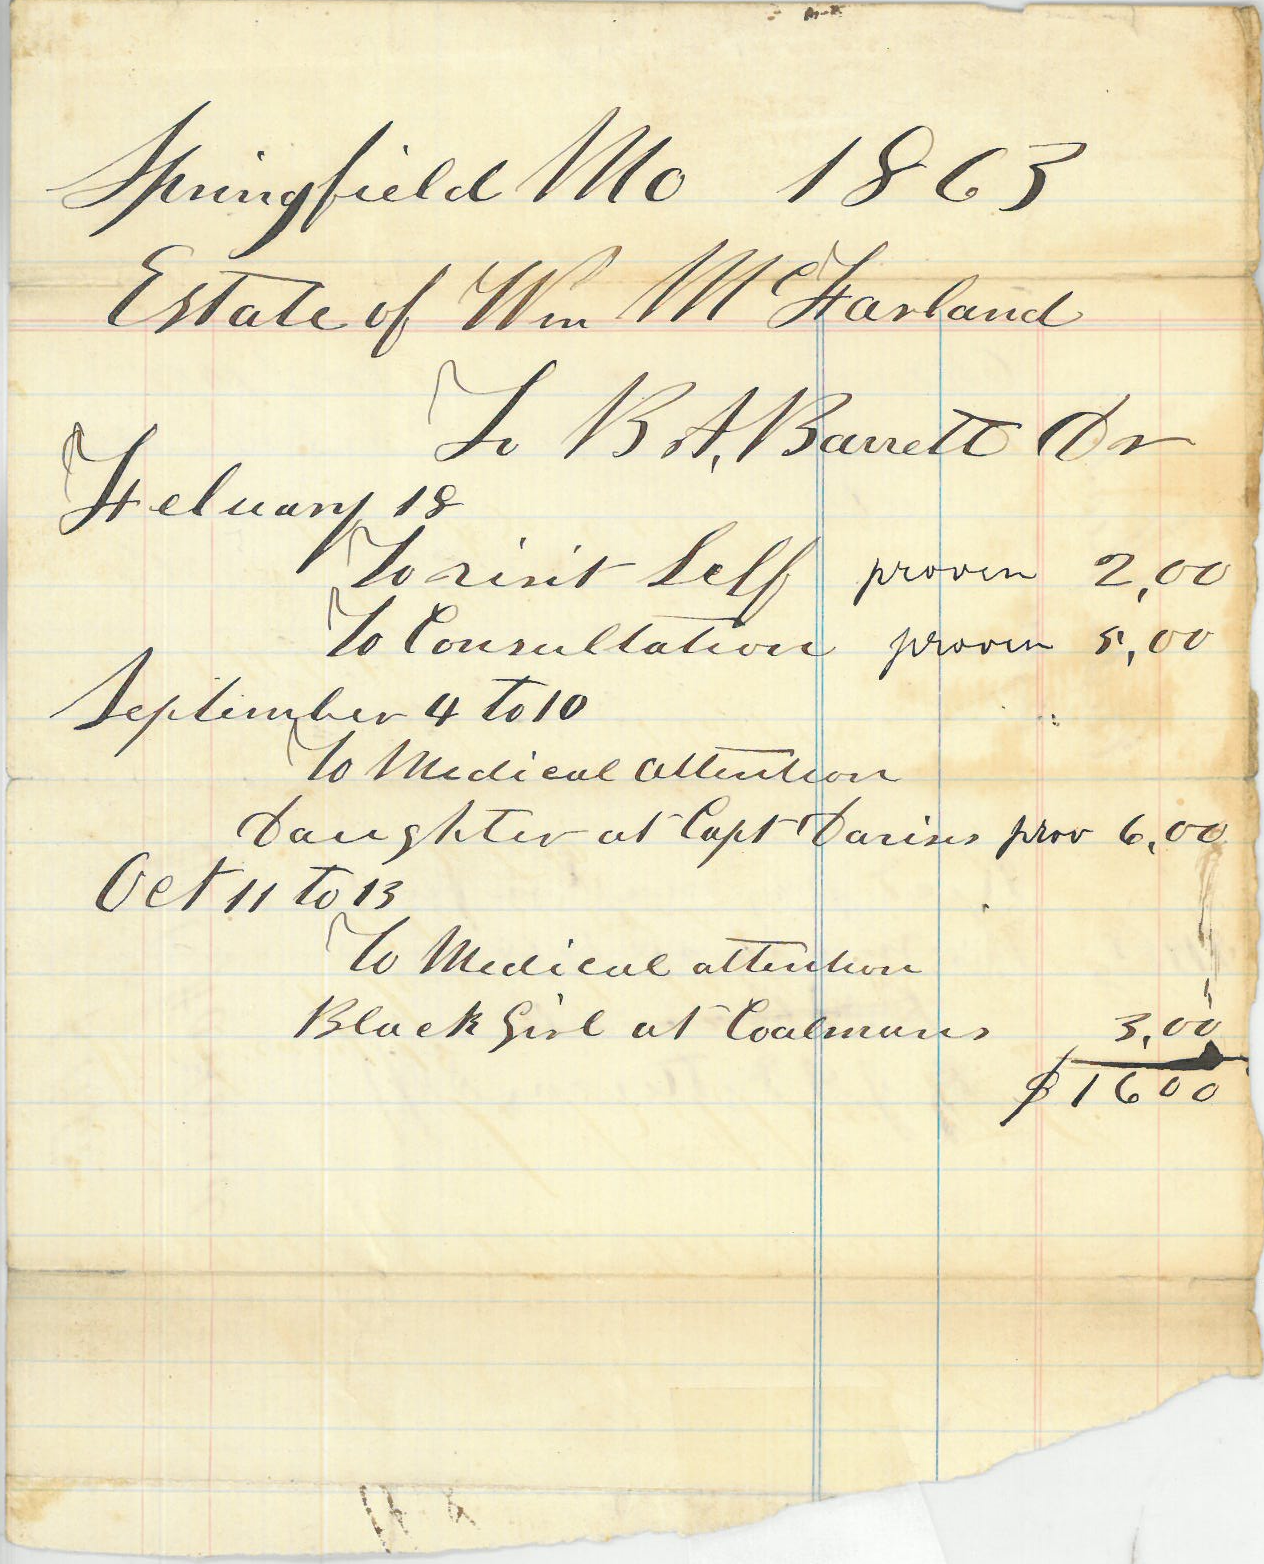 Springfield Mo 1863
Estate of Wm McFarland
To B A, Barrett Dr
Feluary 18
To visit Self proven 2,00
To Consultation proven 5,00
September 4 to 10
To Medical attention
Daughter at Capt Davises prov 6,00
Oct 11 to 13
To Medical attention
Black Girl at Coalmans 3,00
$1600